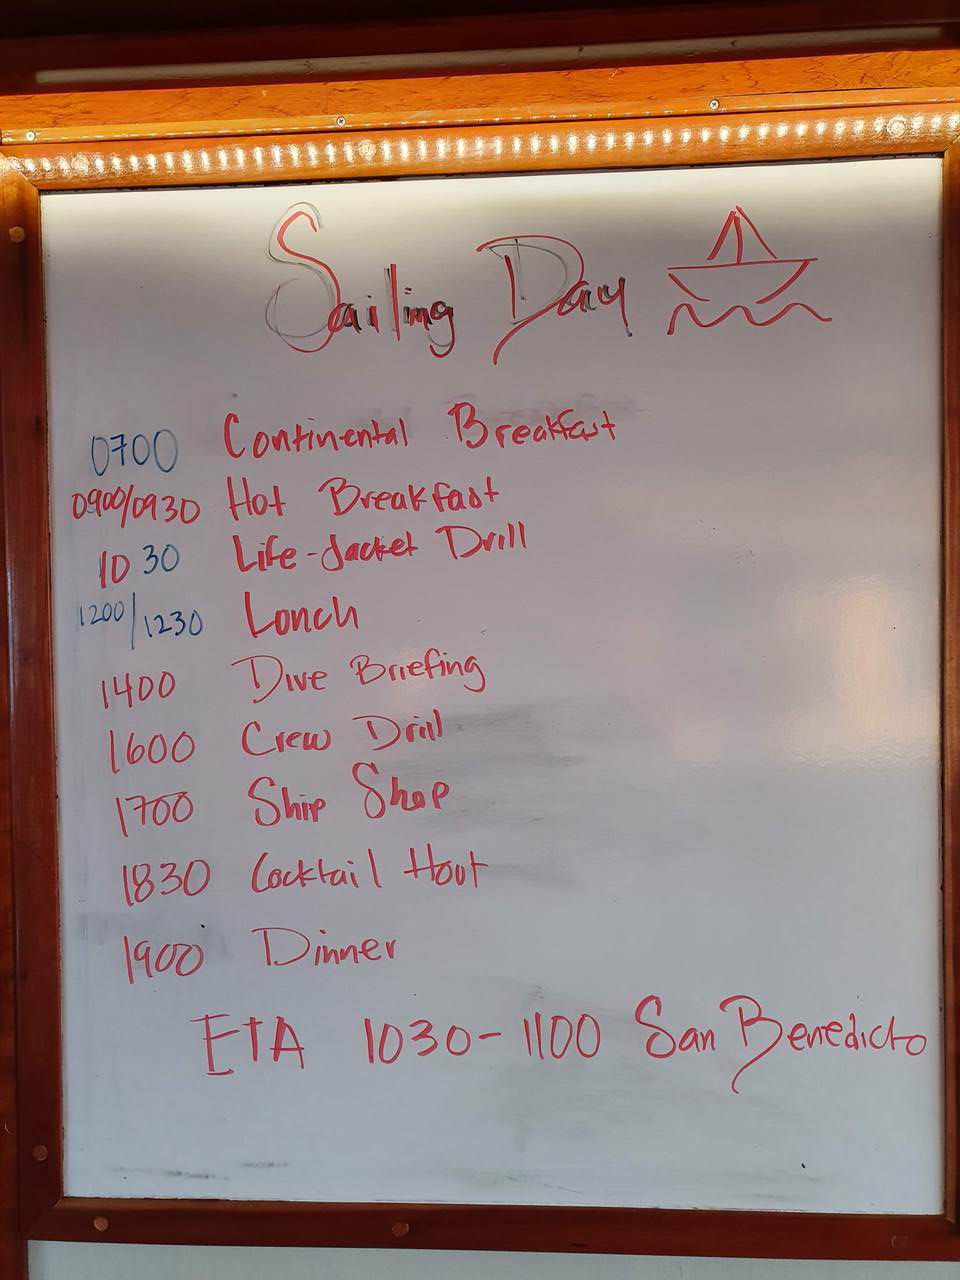 Sailing Day
0700 Continental Breakfast
0900/0930 Hot Breakfast
1030 Life-Jacket Drill
1200/1230 Lonch
1400 Dive Briefing
1600 Crew Drill
1700 Ship Shop
1830 Cocktail Hour
1900 Dinner
ETA 1030-1100 San Benedicto